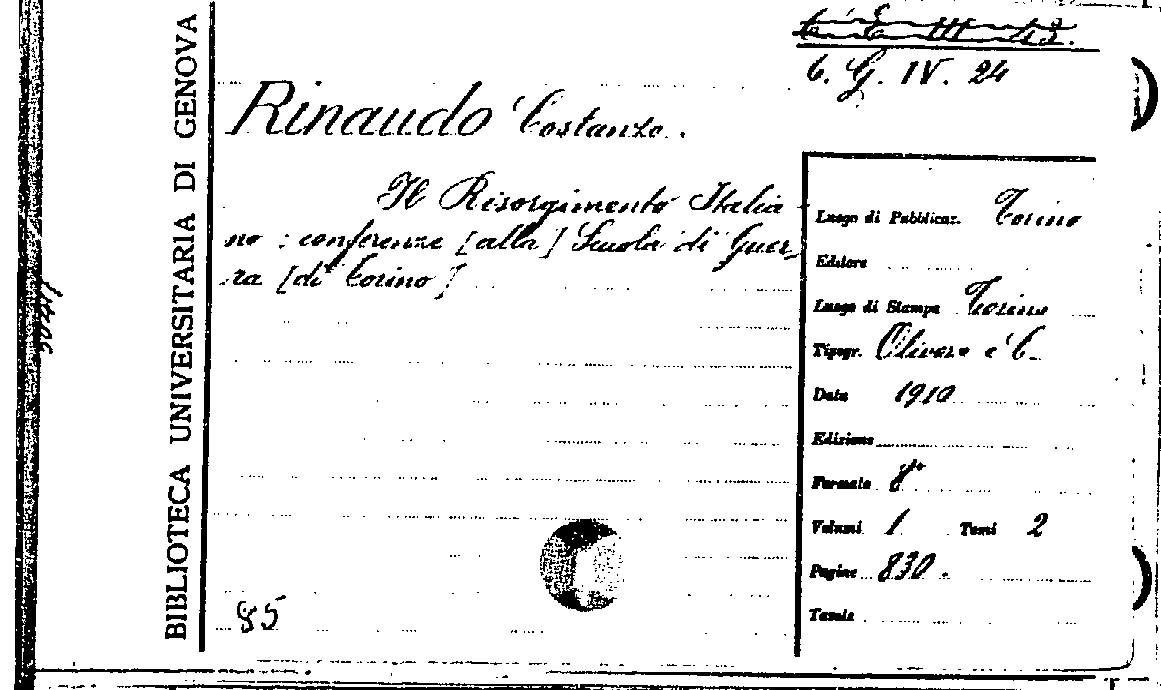 BIBLIOTECA UNIVERSITARIA DI GENOVA
6. G. IV. 24
Rinaudo Costanzo.
Il Risorgimento Italia-
no: conferenze [alla] Scuola di Guer-
ra [di Torino]
85
Luogo di Pubblicaz. Torino
Editore
Luogo di Stampa Torino
Tipogr. Olivero e C.
Data 1910
Edizione
Formato 8°
Volumi 1 Tomi 2
Pagine 830.
Tavole